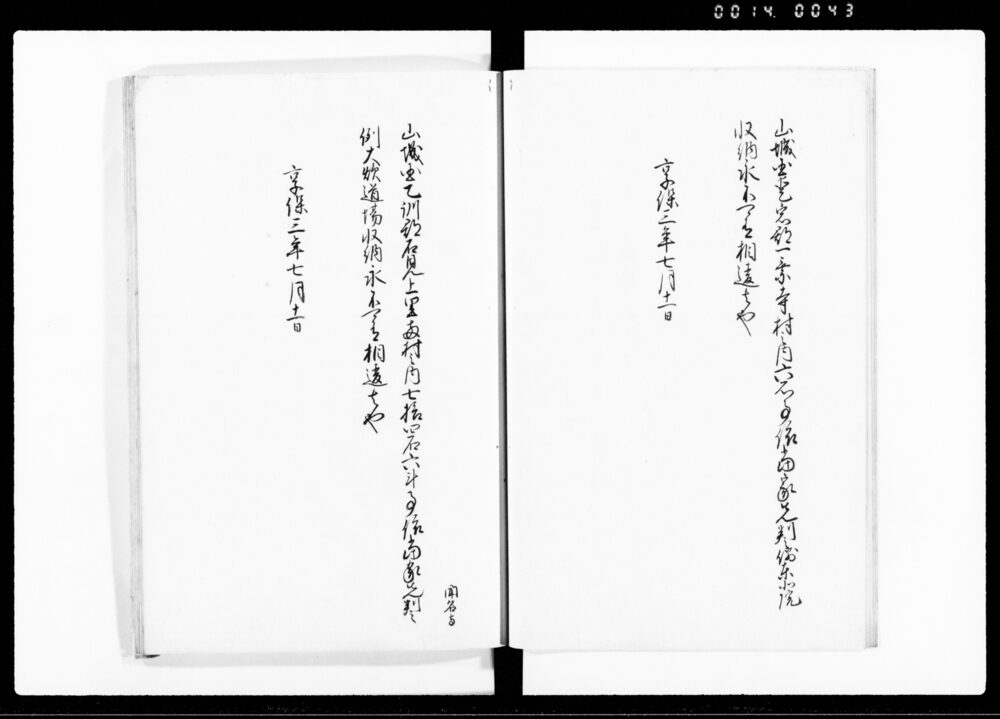 0014 0043
山城国愛宕郡一乗寺村之内六石事依当家先判
収納永不可有相違者也
享保三年七月十一日
聞名寺
山城国乙訓郡石見上里両村之内七拾四石六斗事依当家先判之
例大炊道場収納永不可有相違者也
享保三年七月十一日